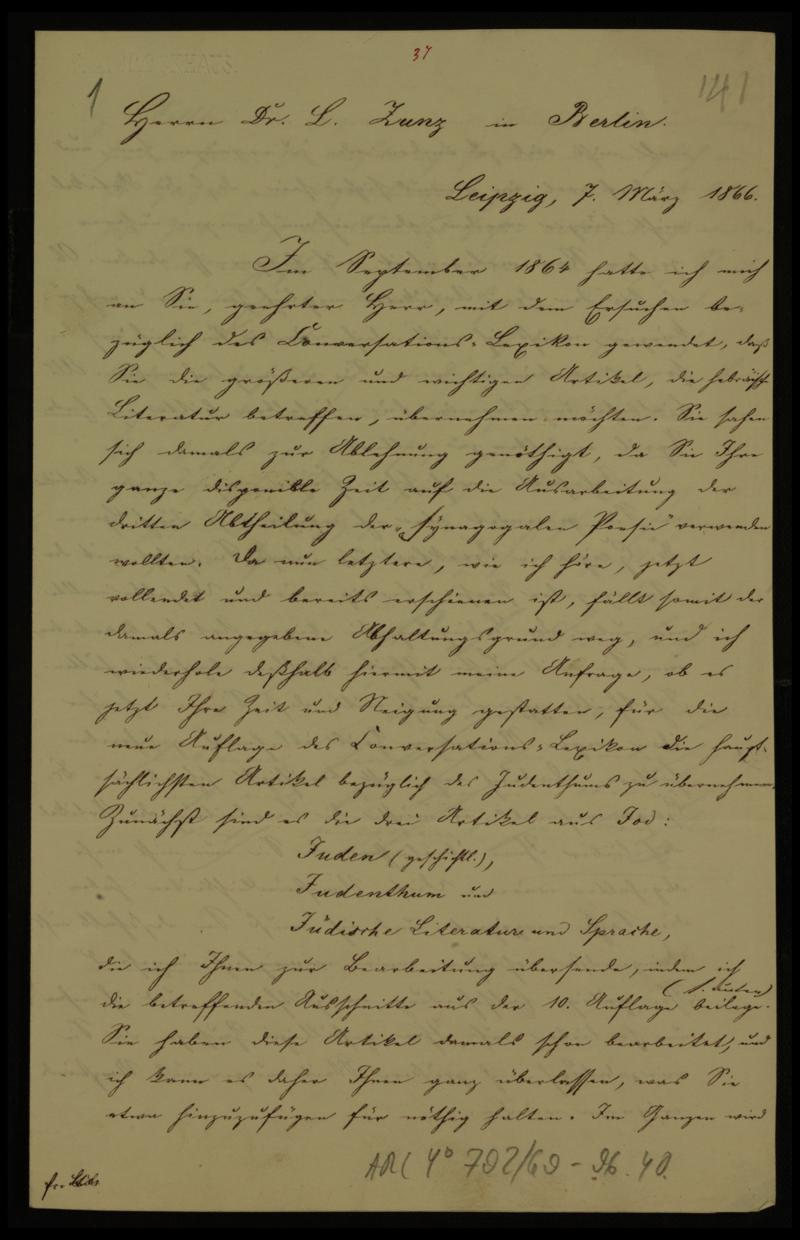 37
1
141
Herrn Dr. L. Zunz in Berlin.
Leipzig, 7. März 1866.
Im September 1864 hatte ich mich
an Sie, geehrter Herr, mit dem Ersuchen be-
züglich des Conversations-Lexikon gewendet, daß
Sie die größeren und wichtigen Artikel, die hebräisch
Literatur betreffen, übernehmen möchten. Sie sahen
sich damals zur Ablehnung genöthigt, da Sie Ihre
ganze disponible Zeit auf die Ausarbeitung der
dritten Abtheilung der „Synagogalen Poesie" verwenden
wollten. Da nun letztere, wie ich höre, jetzt
vollendet und bereits erschienen ist, fällt somit der
damals angegebene Abhaltungsgrund weg, und ich
wiederhole deßhalb hiermit meine Anfrage, ob es
jetzt Ihre Zeit und Neigung gestatten, für die
neue Auflage des Conversations-Lexikon die haupt-
sächlichsten Artikel bezüglich des Judenthums zu übernehmen.
Zunächst sind es die drei Artikel aus Jod:
Juden (geschichtl.),
Judenthum und
Jüdische Literatur und Sprache,
die ich Ihnen zur Bearbeitung übersende, indem ich
die betreffenden Ausschnitte aus der 10. Auflage beilege.
(s. unten)
Sie haben diese Artikel damals schon bearbeitet, und
ich kann es daher Ihnen ganz überlassen, was Sie
etwa hinzuzufügen für nöthig halten. Im Ganzen wird
ARC 4° 792/G9 - 96.40